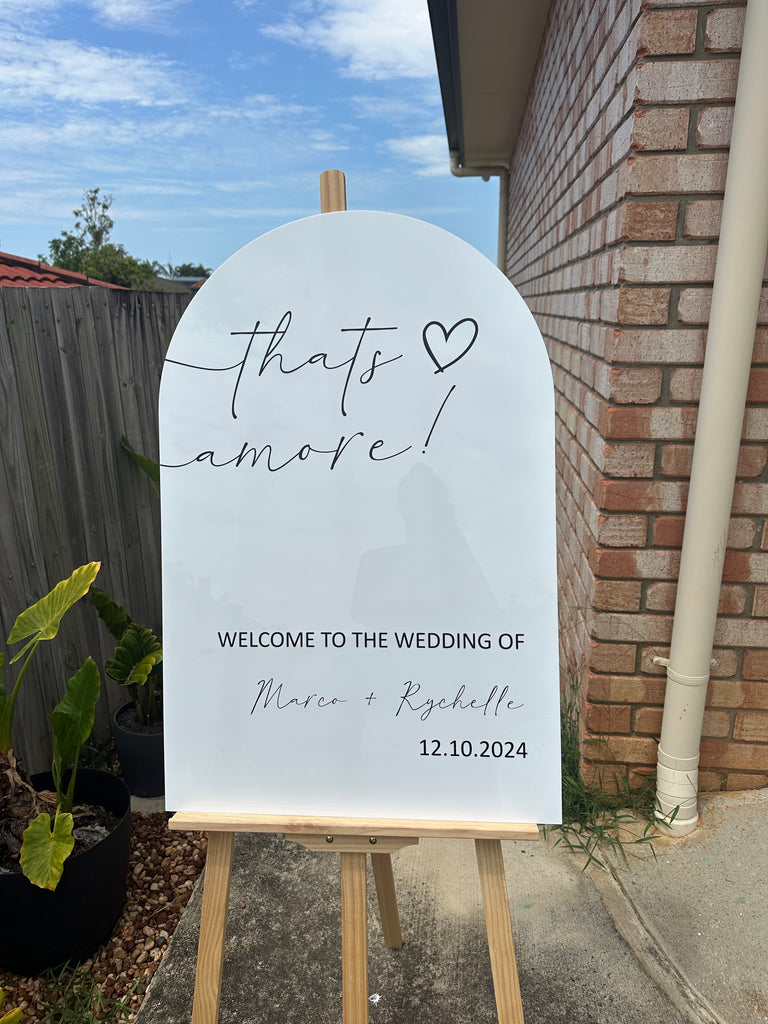 thats ♡
amore!
WELCOME TO THE WEDDING OF
Marco + Rychelle
12.10.2024